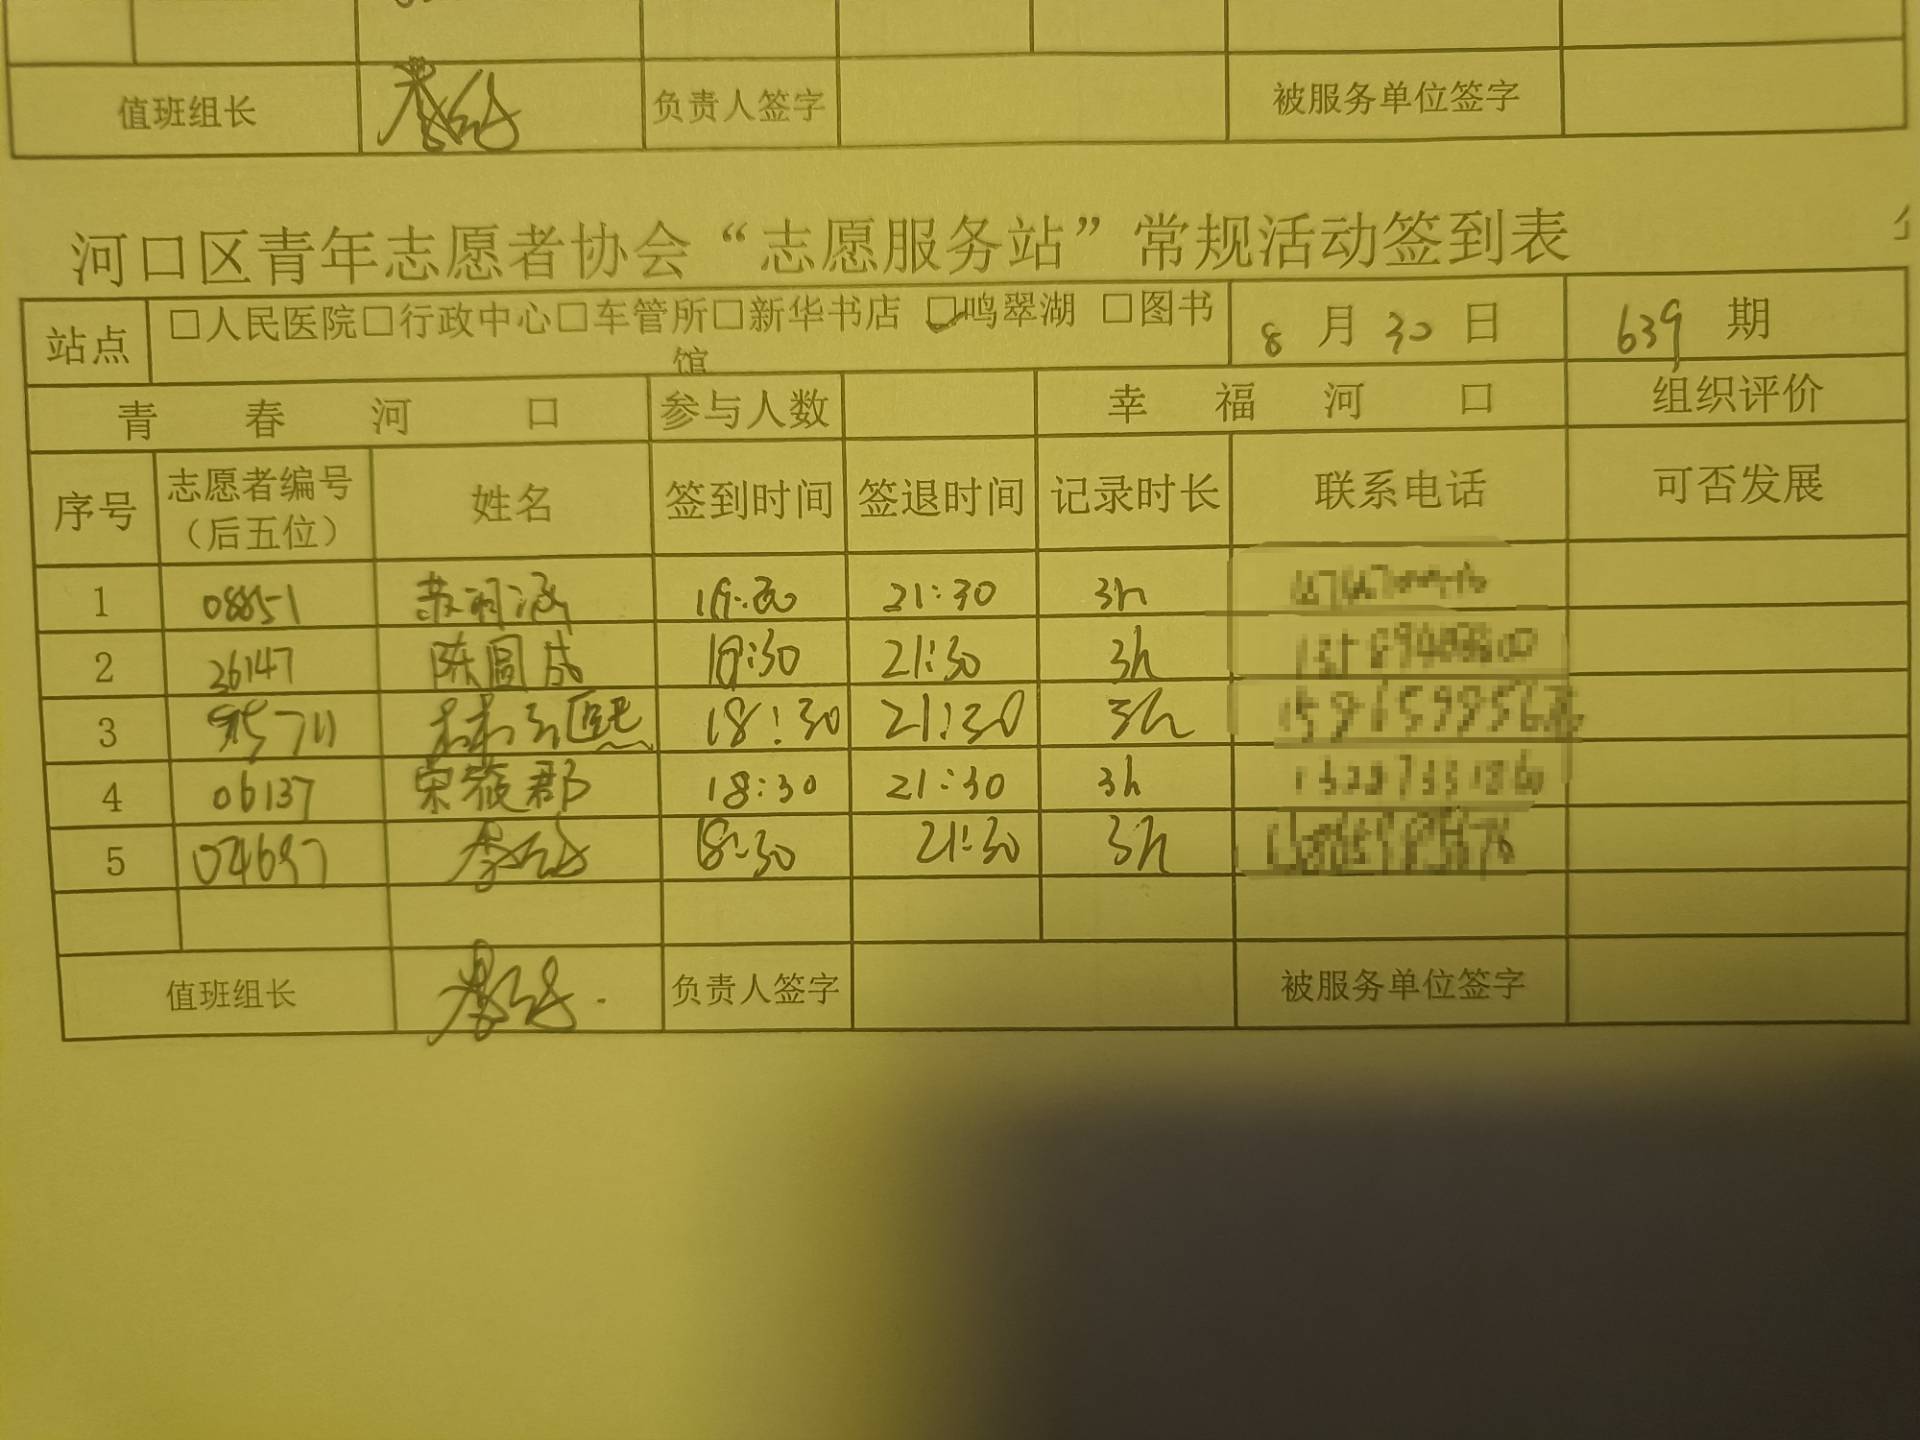 值班组长 负责人签字 被服务单位签字
河口区青年志愿者协会“志愿服务站”常规活动签到表
站点 □人民医院□行政中心□车管所□新华书店 ☑鸣翠湖 □图书馆 8月30日 639期
青春河口 参与人数 幸福河口 组织评价
序号 志愿者编号（后五位） 姓名 签到时间 签退时间 记录时长 联系电话 可否发展
1 08851 21:30 3h
2 26147 陈圆成 18:30 21:30 3h
3 18:30 21:30 3h
4 06137 宋筱郡 18:30 21:30 3h
5 04697 18:30 21:30 3h
值班组长 负责人签字 被服务单位签字